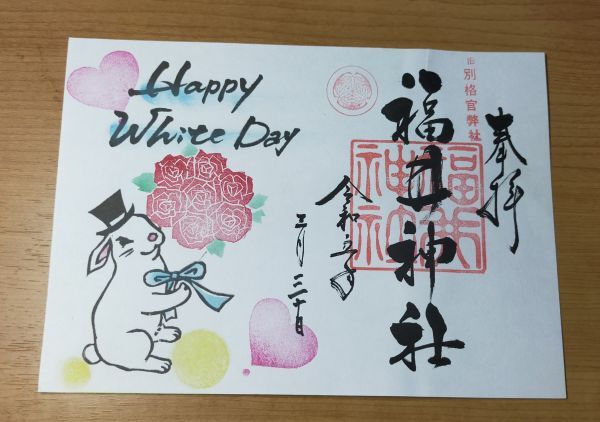 Happy
White Day
奉拝
旧別格官弊社
福井神社
福井神社
令和六年
三月三十日